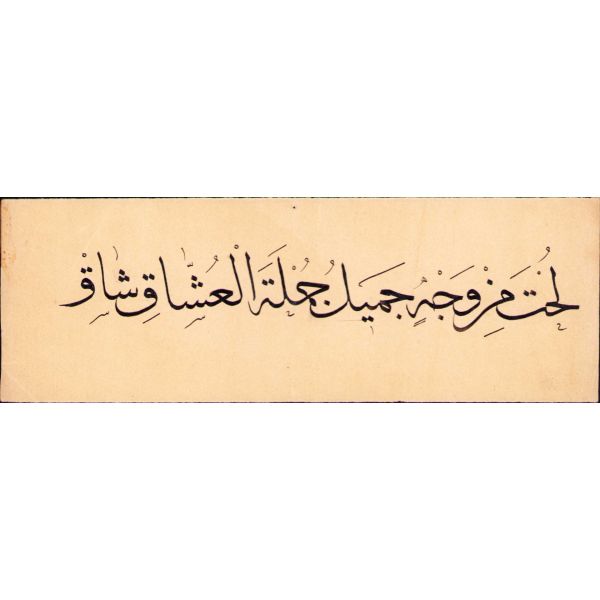 لُحْتَ مِنْ وَجْهٍ جَمِيلٍ جُمْلَةَ الْعُشَّاقِ شَاقْ